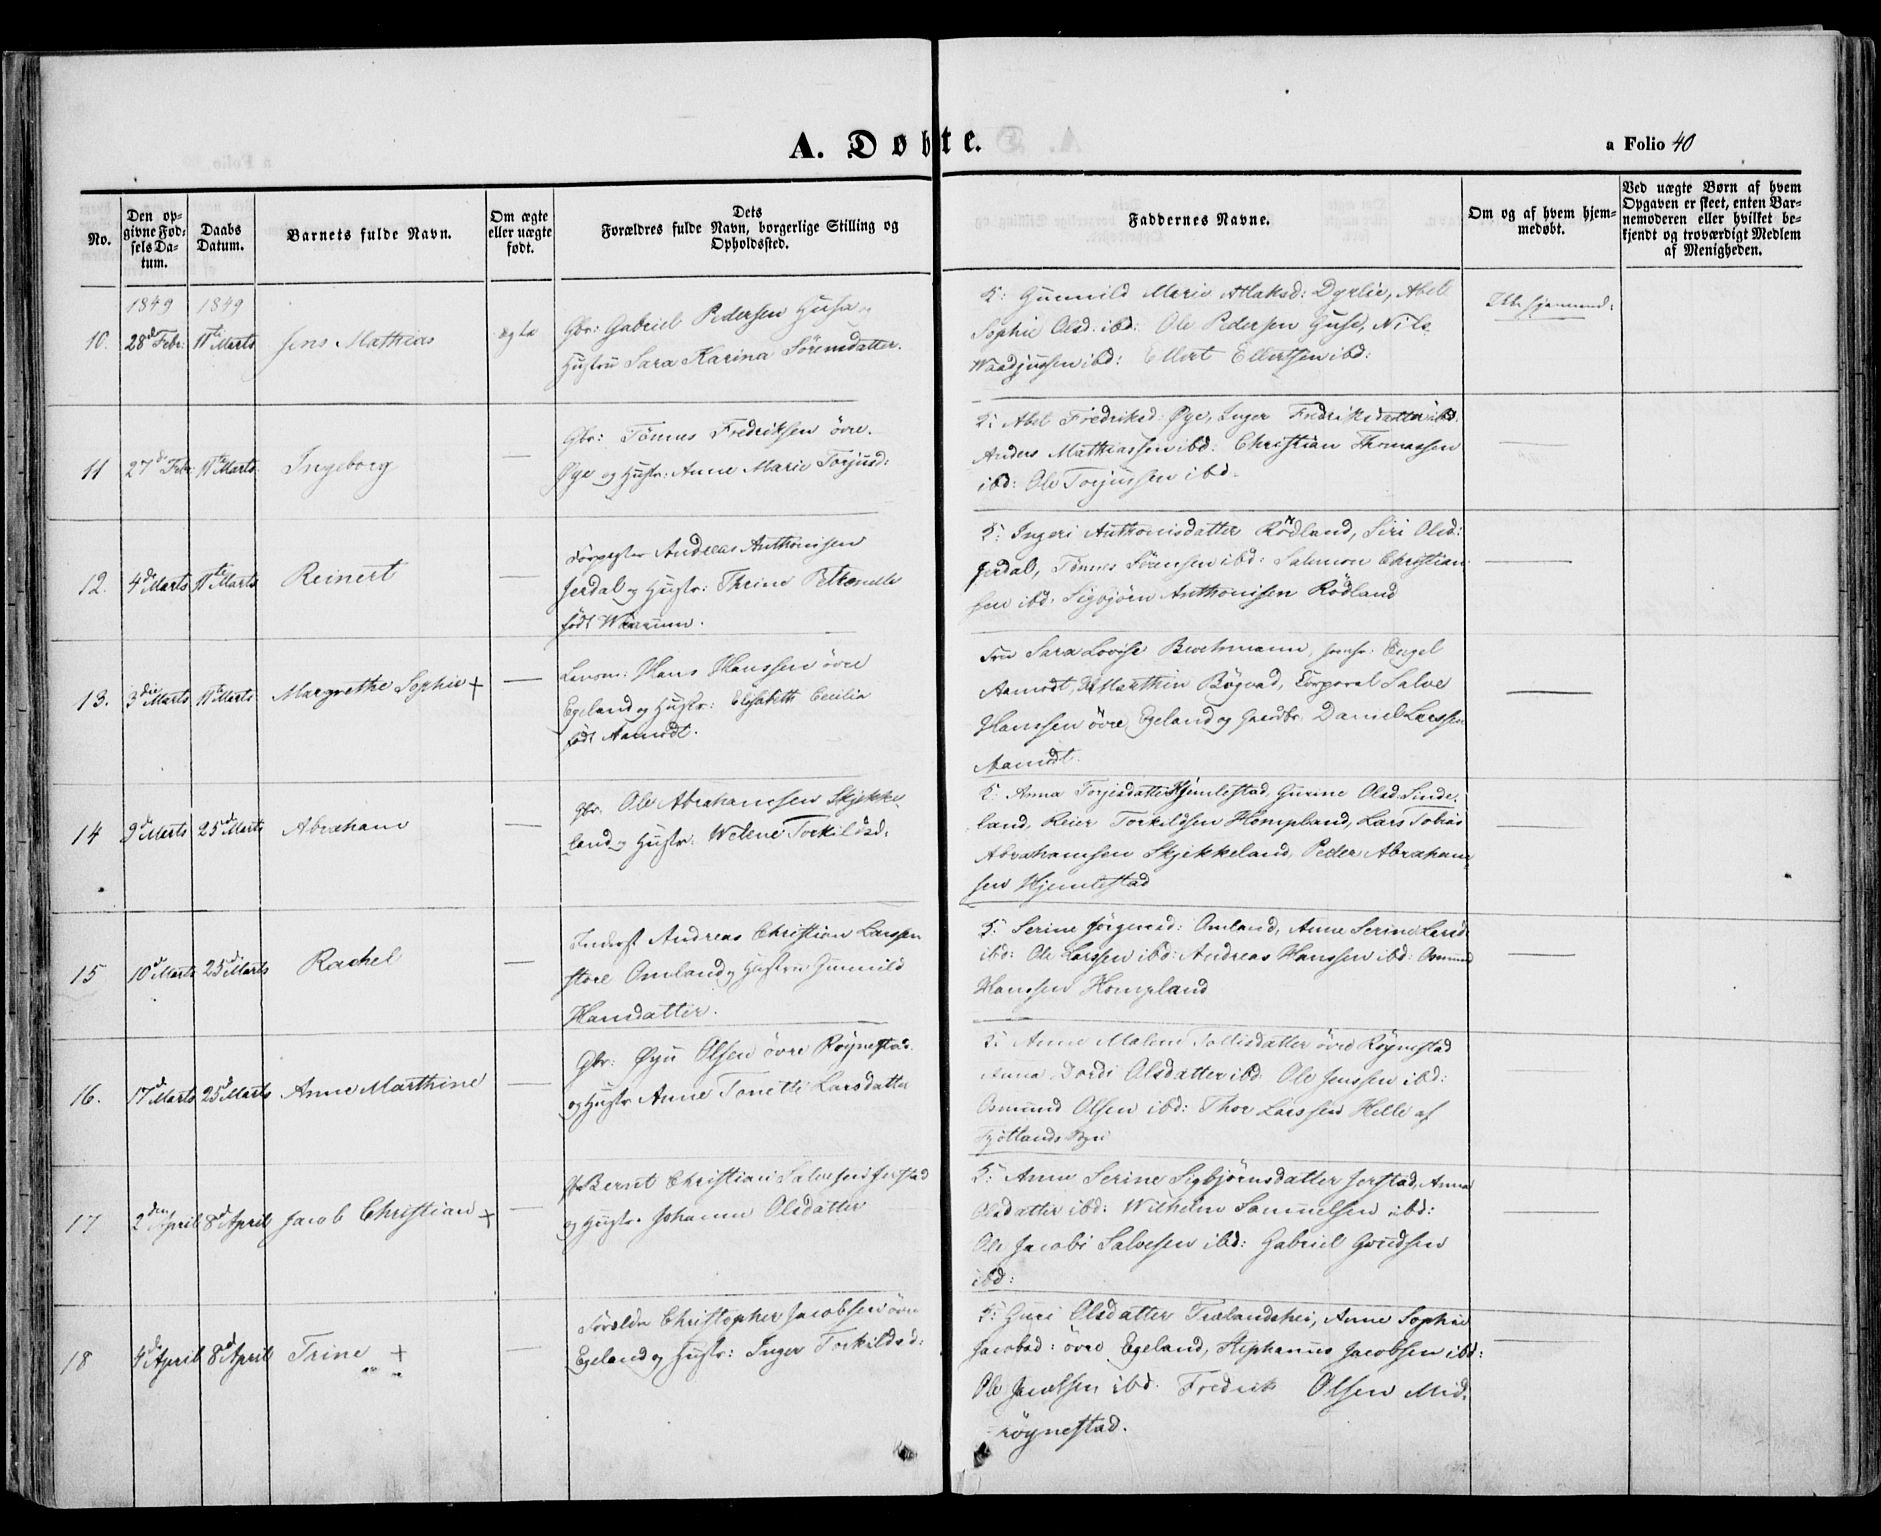 A. Døbte.
a Folio 40
No.
Den opgivne Fødsels Datum.
Daabs Datum.
Barnets fulde Navn.
Om ægte eller uægte født.
Dets Forældres fulde Navn, borgerlige Stilling og Opholdssted.
Faddernes Navne.
Om og af hvem hjemmedøbt.
Ved uægte Børn af hvem Opgaven er skeet, enten Barnemoderen eller hvilket bekjendt og troværdigt Medlem af Menigheden.
1849 1849
10. 28d Febr: 11te Marts Jens Mathias ægte
Gbr: Gabriel Pedersen Guse og
Hustru Sara Karina Sörensdatter.
F: Gunnild Marie Atlaksd: Dyrlie, Abel
Sophie Olsd. ibd: Ole Pedersen Guse, Nils
ibd: Ellert Ellertsen ibd:
Ikke hjemmed:
11 27d Febr 11te Marts Ingeborg —
Gbr: Tönnes Fredriksen övre
Øye og Hustr: Anne Marie Torjusd:
F: Abel Fredriksd: Øye, Inger Fredriksdatter ibd.
Anders Mathiassen ibd: Christian Thomassen
ibd: Ole Torjussen ibd.
12. 4de Marts 11te Marts Reinert —
Andreas Anthonisen
Jerdal og Hustr: Thrine Petronelle
født
F: Ingeri Anthonisdatter Rödland, Siri Olsd:
Jerdal, Tönnes Sörensen ibd: Salemon Christian
sen ibd: Sigbjörn Anthonisen Rödland
13. 3die Marts 11te Marts Margrethe Sophie + —
Hans Hanssen övre
Egeland og Hustr: Elisabeth Cecilia
født Aamodt.
Sara Lovise Jomfr. Engel
Aamodt, Marthin Bögvad, Corporal Salve
Hanssen övre Egeland og Gaardbr. Daniel Larssen
Aamodt.
14 9d Marts 25d Marts Abraham —
Gbr. Ole Abrahamsen Skjekke
land og Hustr: Torkildsd:
F: Anna Torjisdatter Hjemlestad, Gurine Olsd. Linde
land, Reier Torkildsen Hompland, Lars Tobias
Abrahamsen Skjekkeland, Peder Abraham
sen Hjemlestad
15 10d Marts 25d Marts Rachel —
Inderst Andreas Christian Larssen
store Omland og Hustru Gunnild
Hansdatter.
F: Serine Jörgensd: Omland, Anne Serine Larsd:
ibd: Ole Larssen ibd: Andreas Hanssen ibd: Osmund
Hanssen Hompland
16. 17d Marts 25d Marts Anne Marthine —
Gbr: Øyu Olsen övre Röynestad
og Hustr Anne Tonette Larsdatter
F: Anne Malene Tollisdatter övre Röynestad
Anna Dordi Olsdatter ibd Ole Jenssen ibd:
Osmund Olsen ibd: Thor Larssen Helle af
Fjotlands
17 2den April 8d April Jacob Christian + —
Bernt Christian Salvesen Jerstad
og Hustr. Johanne Olsdatter
F: Anne Serine Sigbjörnsdatter Jerstad, Anna
Olsdatter ibd: Wilhelm Samuelsen ibd:
Ole Jacobi Salvesen ibd: Gabriel Gundsen
ibd:
18 4de April 8d April Trine + —
Christopher Jacobsen övre
Egeland og Hustr: Inger Torkildsd:
F: Guri Olsdatter Trælandshei, Anne Sophie
Jacobsd: övre Egeland, Stephanus Jacobsen ibd:
Ole Jacobsen ibd. Fredrik Olsen Mid
röynestad.